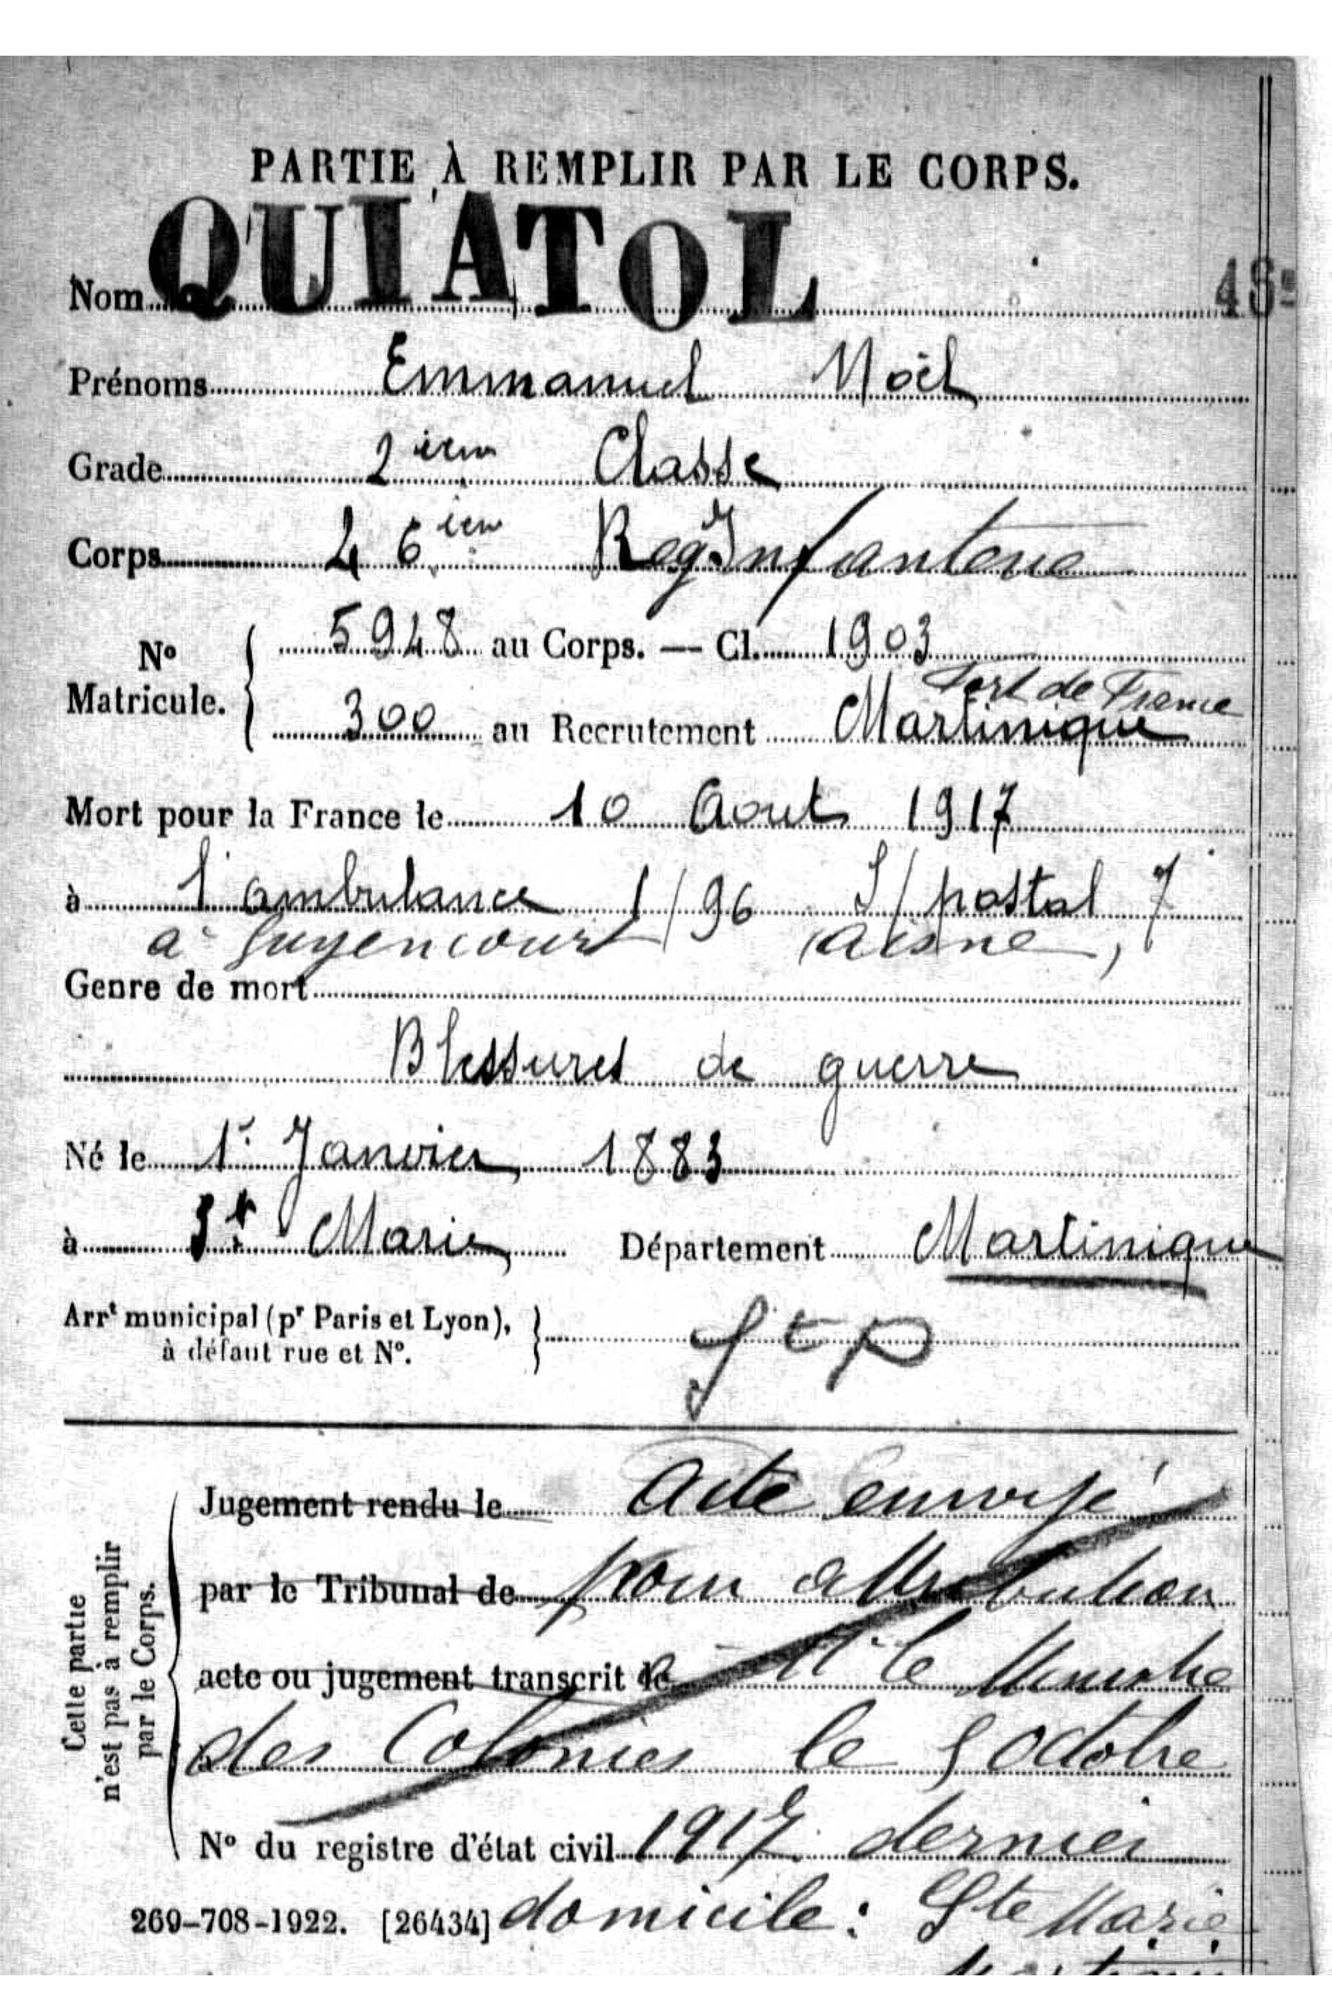 PARTIE À REMPLIR PAR LE CORPS.
Nom QUIATOL
Prénoms Emmanuel Noël
Grade 2ièm Classe
Corps 46ièm Reg. Infanterie
No Matricule. 5948 au Corps. — Cl. 1903
Fort de France
300 au Recrutement Martinique
Mort pour la France le 10 Aout 1917
à l'ambulance 1/96 S/postal 7
à Guyencourt (Aisne)
Genre de mort
Blessures de guerre
Né le 1r Janvier 1883
à Ste Marie Département Martinique
Arrt municipal (pr Paris et Lyon),
à défaut rue et No.
Cette partie n'est pas à remplir par le Corps.
Jugement rendu le acte envoyé
par le Tribunal de pour attribution
acte ou jugement transcrit le à M. le Ministre
des Colonies le 5 octobre
No du registre d'état civil 1917 dernier
269-708-1922. [26434] domicile : Ste Marie